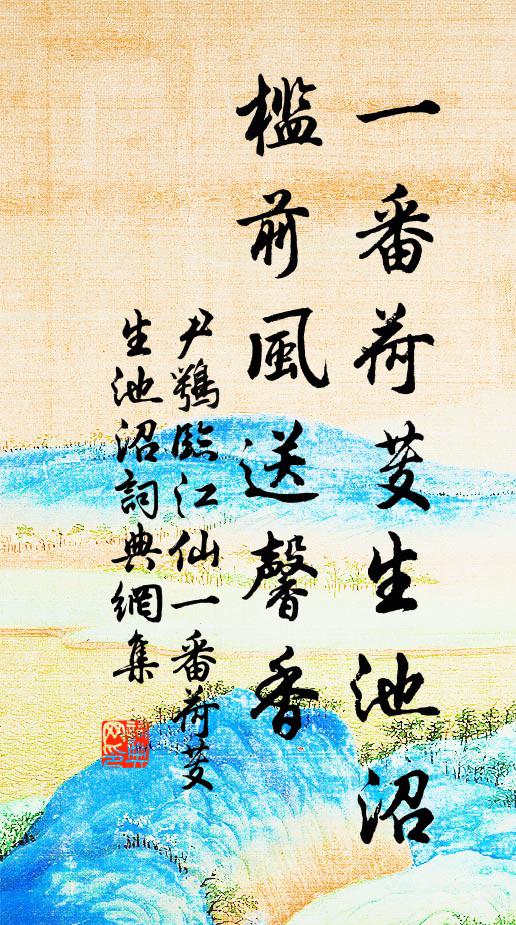 一番荷芰生池沼
檻前風送馨香
尹鶚臨江仙一番荷芰
生池沼詞典網集